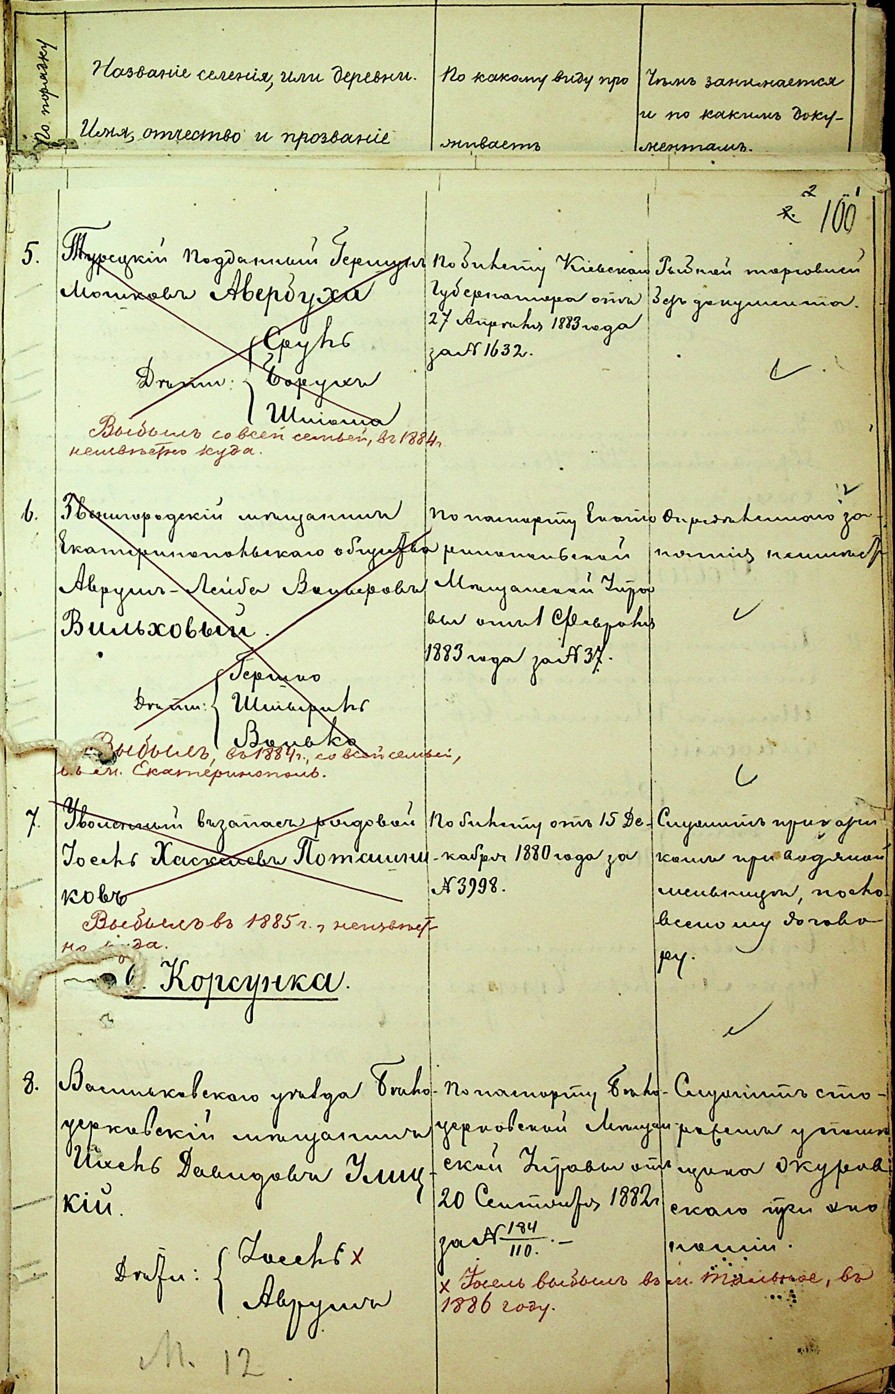 По порядку
Названіе селенія, или деревни.
Имя, отчество и прозваніе
По какому виду про
живаетъ
Чѣмъ занимается
и по какимъ доку-
ментамъ.
2
2. 100
5.
Турецкій подданный Гершунъ
Мошковъ Авербуха
Дѣти:
Сруль
Борухъ
Шлома
Выбылъ со всей семьей, въ 1884 г.
неизвѣстно куда.
По билету Кіевскаго
Губернатора отъ
27 Апрѣля 1883 года
за № 1632.
Рыбной торговлей
безъ документа.
6.
Звенигородскій мѣщанинъ
Екатеринопольскаго общества
Аврумъ-Лейба Вольфовъ
Вильховый.
Дѣти:
Гершко
Шмерль
Волько
Выбылъ, въ 1884 г., со всей семьей,
въ м. Екатеринополь.
По паспорту Екате
ринопольской
Мѣщанской Упра
вы отъ 1 Февраля
1883 года за № 37.
Опредѣленного за-
нятія неимѣетъ
7.
Уволенный въ запасъ рядовой
Іосель Хаскелевъ Поташни
ковъ
Выбылъ въ 1885 г., неизвѣст-
но куда.
По билету отъ 15 Де-
кабря 1880 года за
№ 3998.
Служитъ прикащи
комъ при водяной
мельницѣ, посло-
весному догово-
ру.
с. Корсунка.
8.
Васильковскаго уѣзда Бѣло-
церковскій мѣщанинъ
Ихель Давидовъ Улиц-
кій.
Дѣти:
Іосель x
Аврумъ
По паспорту Бѣло-
церковской Мѣщан
ской Управы отъ
20 Сентября 1882 г.
за № 184/110. —
x Іосель выбылъ въ м. Тальное, въ
1886 году.
Служитъ сто-
рожемъ у помѣ
щика
скаго при эко
номіи.
М. 12